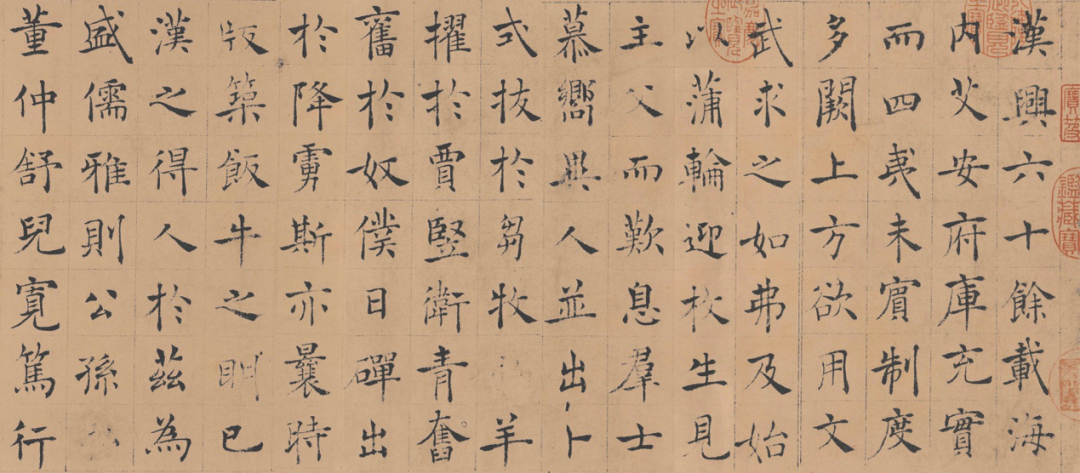 漢興六十餘載海
内艾安府庫充實
而四夷未賓制度
多闕上方欲用文
武求之如弗及始
以蒲輪迎枚生見
主父而歎息羣士
慕嚮異人並出卜
式拔於芻牧羊
擢於賈豎衛青奮
奮於奴僕日磾出
於降虜斯亦曩時
版築飯牛之明已
漢之得人於茲為
盛儒雅則公孫
董仲舒兒寬篤行